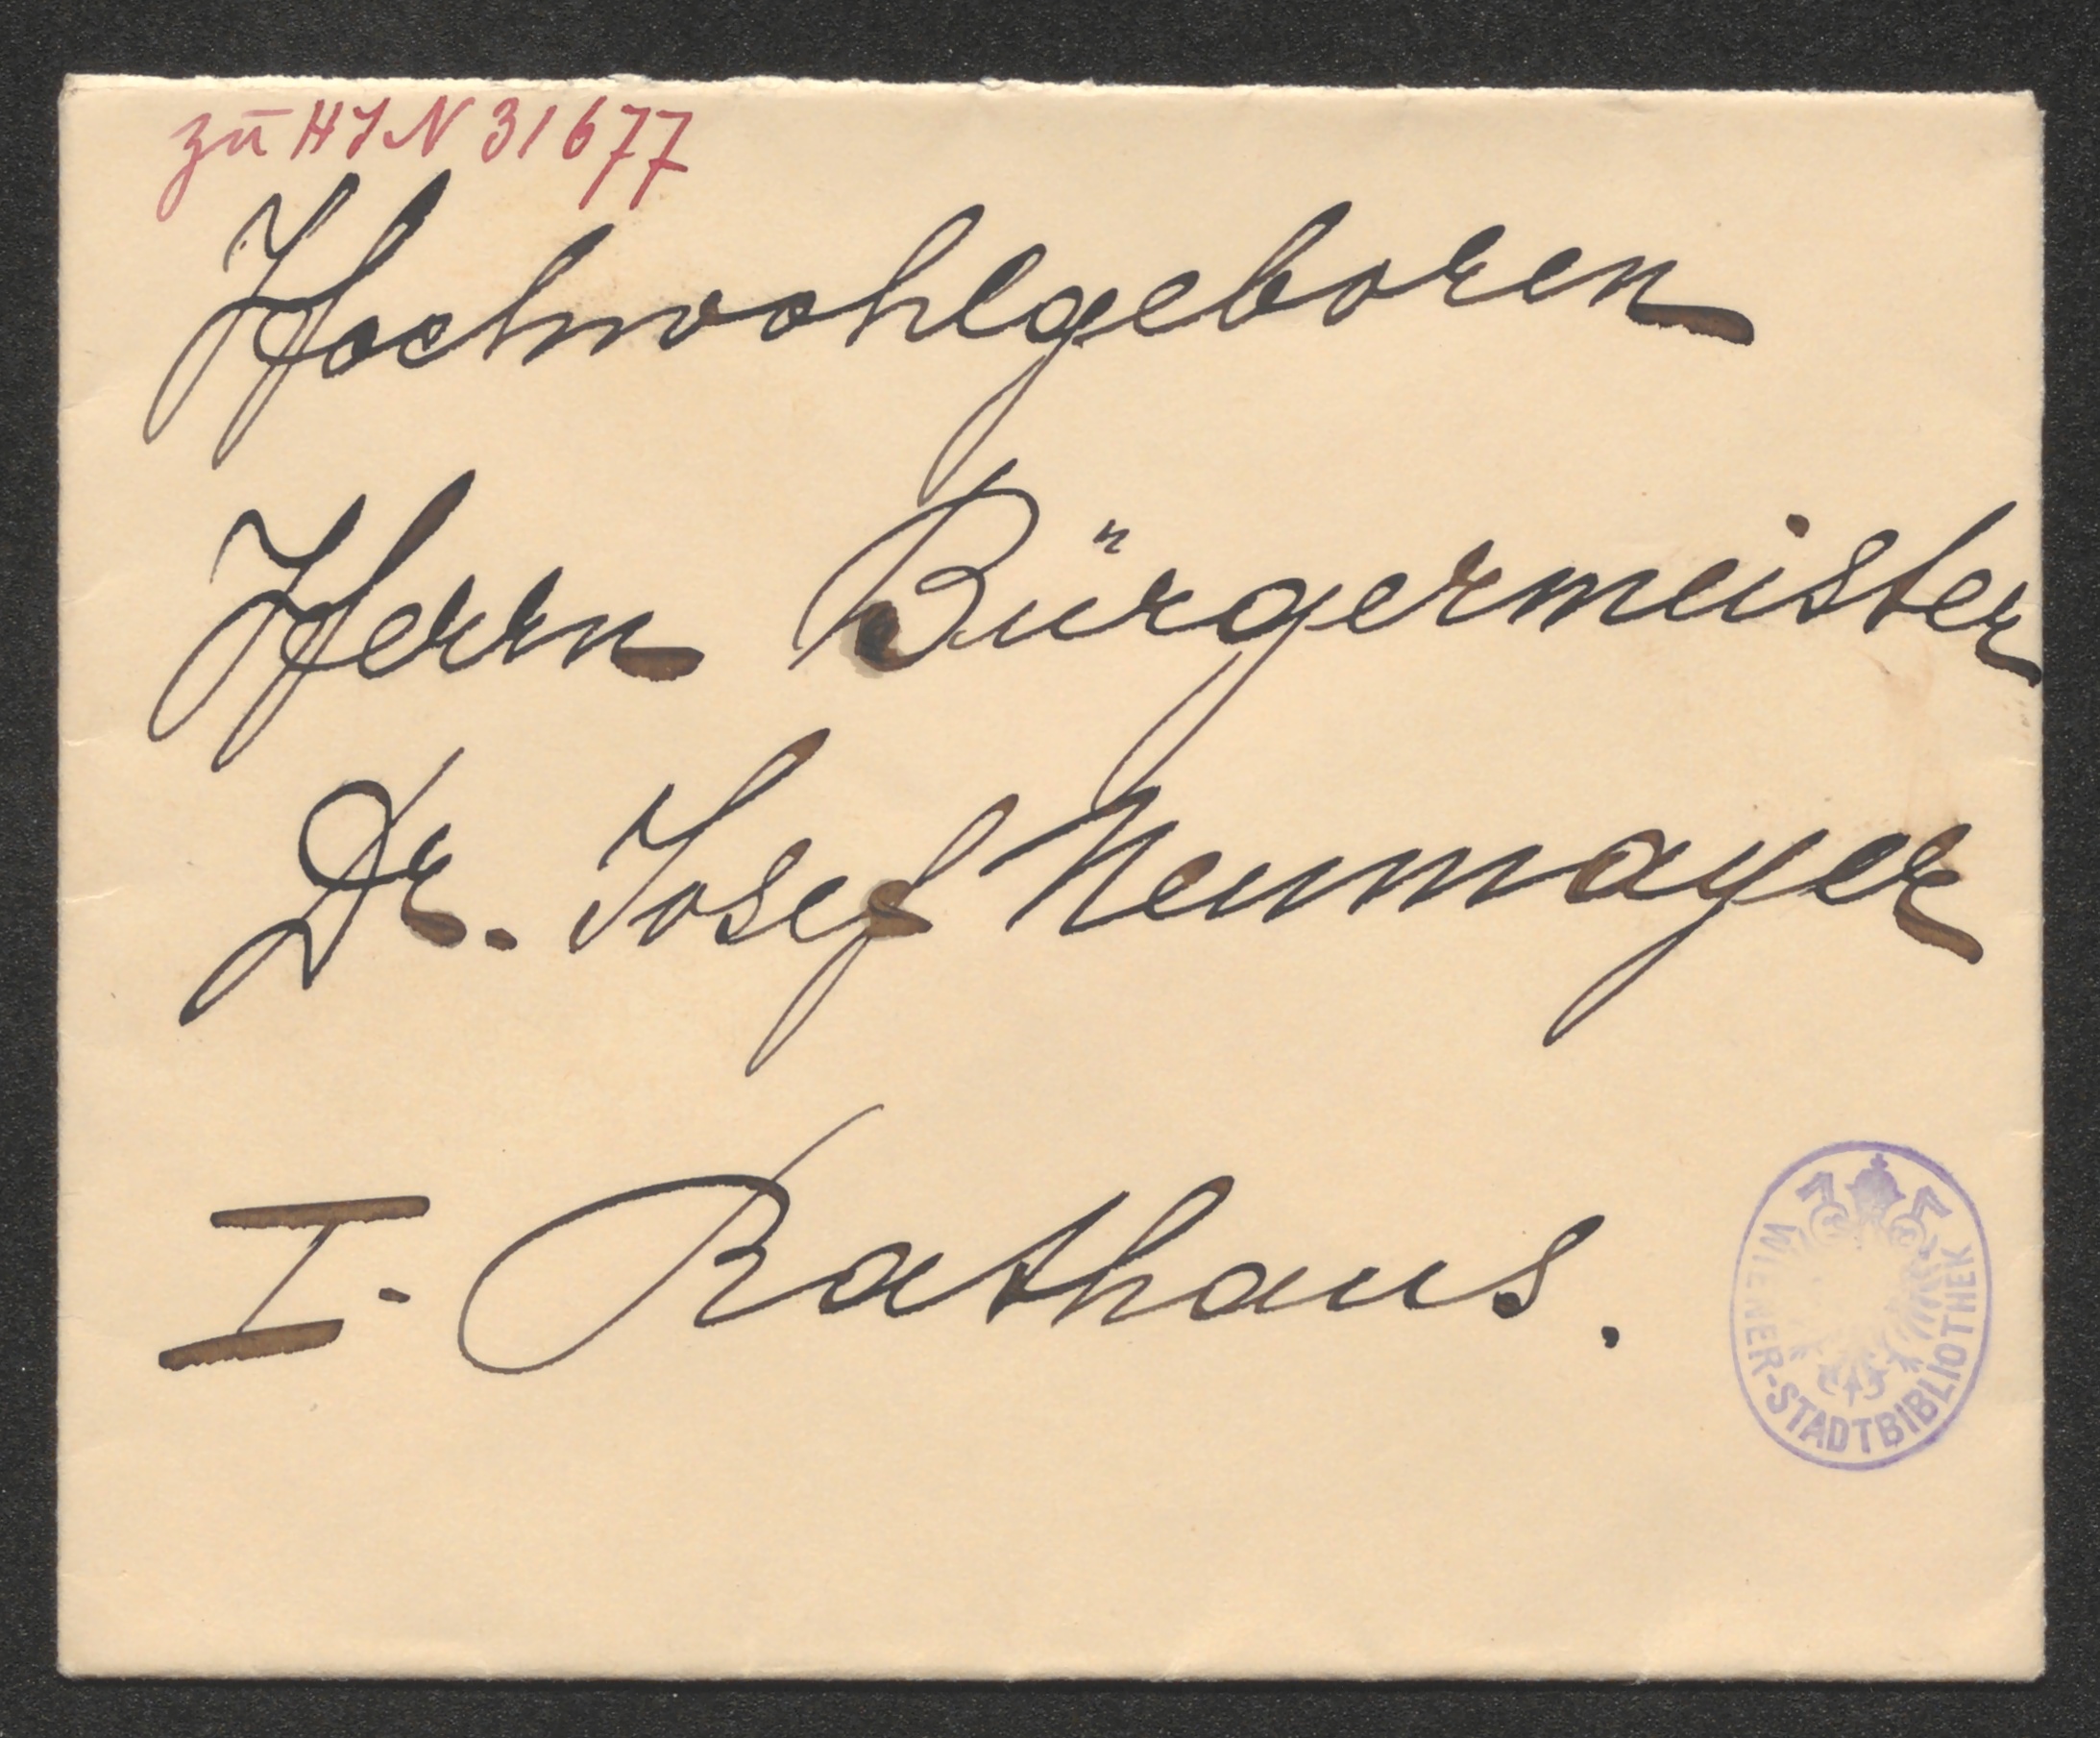 zu HIN 31677
Hochwohlgeboren
Herrn Bürgermeister
Dr. Josef Neumayer
I. Rathaus.
WIENER-STADTBIBLIOTHEK